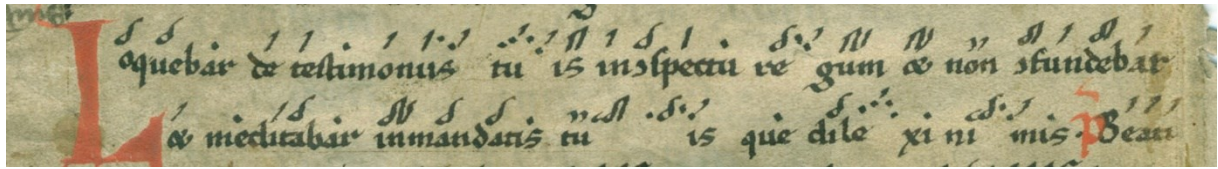 Loquebar de testimoniis tu is in ɔspectu re gum & non ɔfundebar
& meditabar in mandatis tu is que dile xi ni mis. P Beati